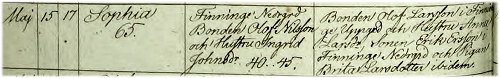 Maj 15 17 Sophia 65.
Finninge Nedgrd
Bonden Olof Nilsson
och Hustru Ingrid
Johnsd. 40-45.
Bonden Olof Larsson i
ge Uppgrd och Hustru
Larsd. Sonen Erik Ersson i
Finninge Nedgrd och Pigan
Brita Larsdotter ibidem.